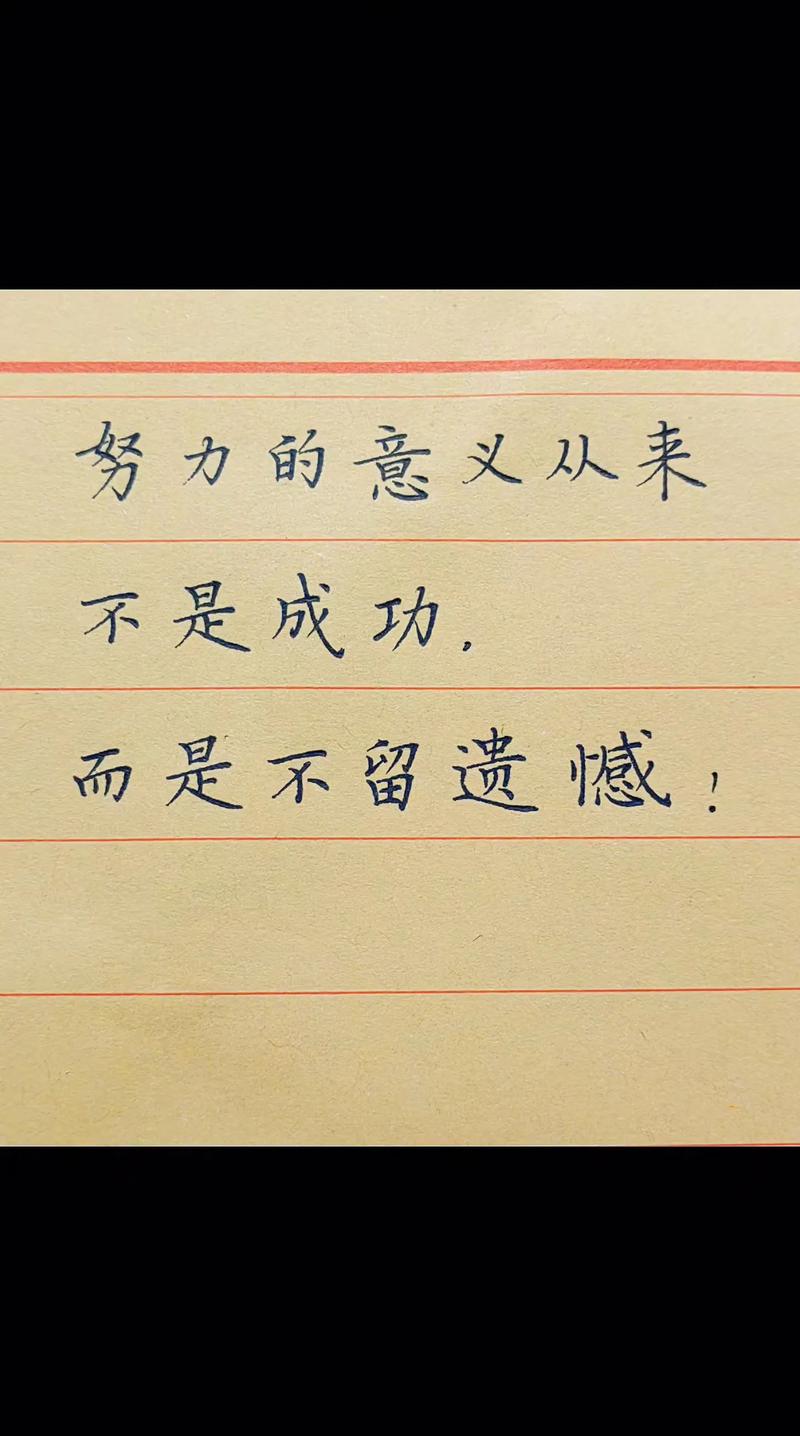 努力的意义从来
不是成功，
而是不留遗憾！